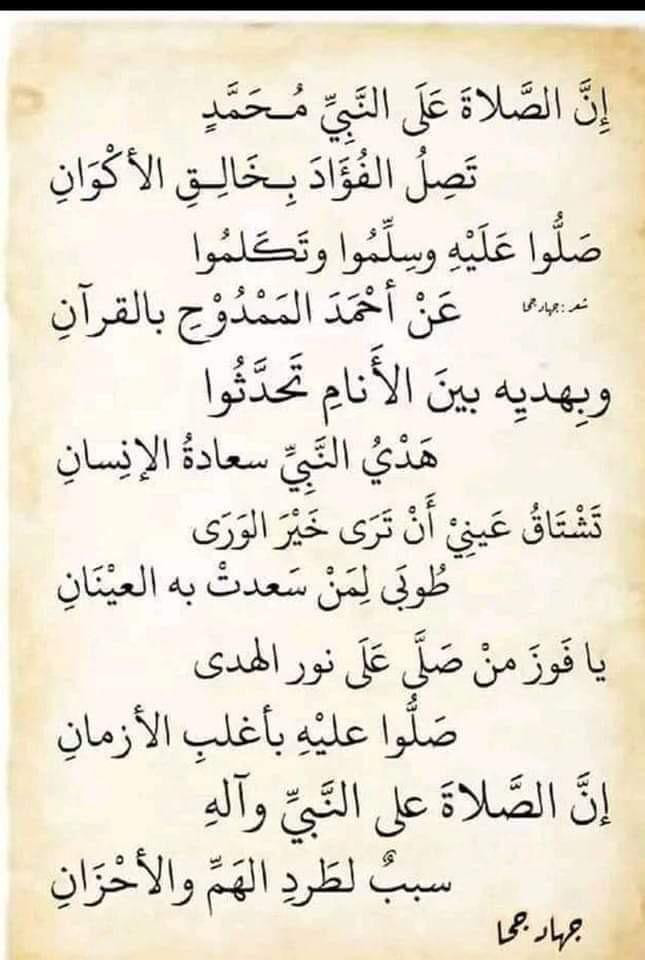 إِنَّ الصَّلاةَ عَلَى النَّبِيِّ مُـحَمَّدٍ
تَصِلُ الفُؤَادَ بِـخَالِـقِ الأَكْوَانِ
صَلُّوا عَلَيْهِ وسِلِّمُوا وتَكَلمُوا
شعر: جهاد جحا
عَنْ أَحْمَدَ المَمْدُوْحِ بالقرآنِ
وبِهديِه بينَ الأَنامِ تَحَدَّثُوا
هَدْيُ النَّبِيِّ سعادةُ الإنِسانِ
تَشْتَاقُ عَينِيْ أَنْ تَرَى خَيْرَ الوَرَى
طُوبَى لِمَنْ سَعدتْ به العيْنَانِ
يا فَوزَ منْ صَلَّى عَلَى نور الهدى
صَلُّوا عليْهِ بأغلبِ الأزمانِ
إنَّ الصَّلاةَ على النَّبيِّ وآلهِ
سببٌ لطَردِ الهَمِّ والأحْزَانِ
جهاد جحا